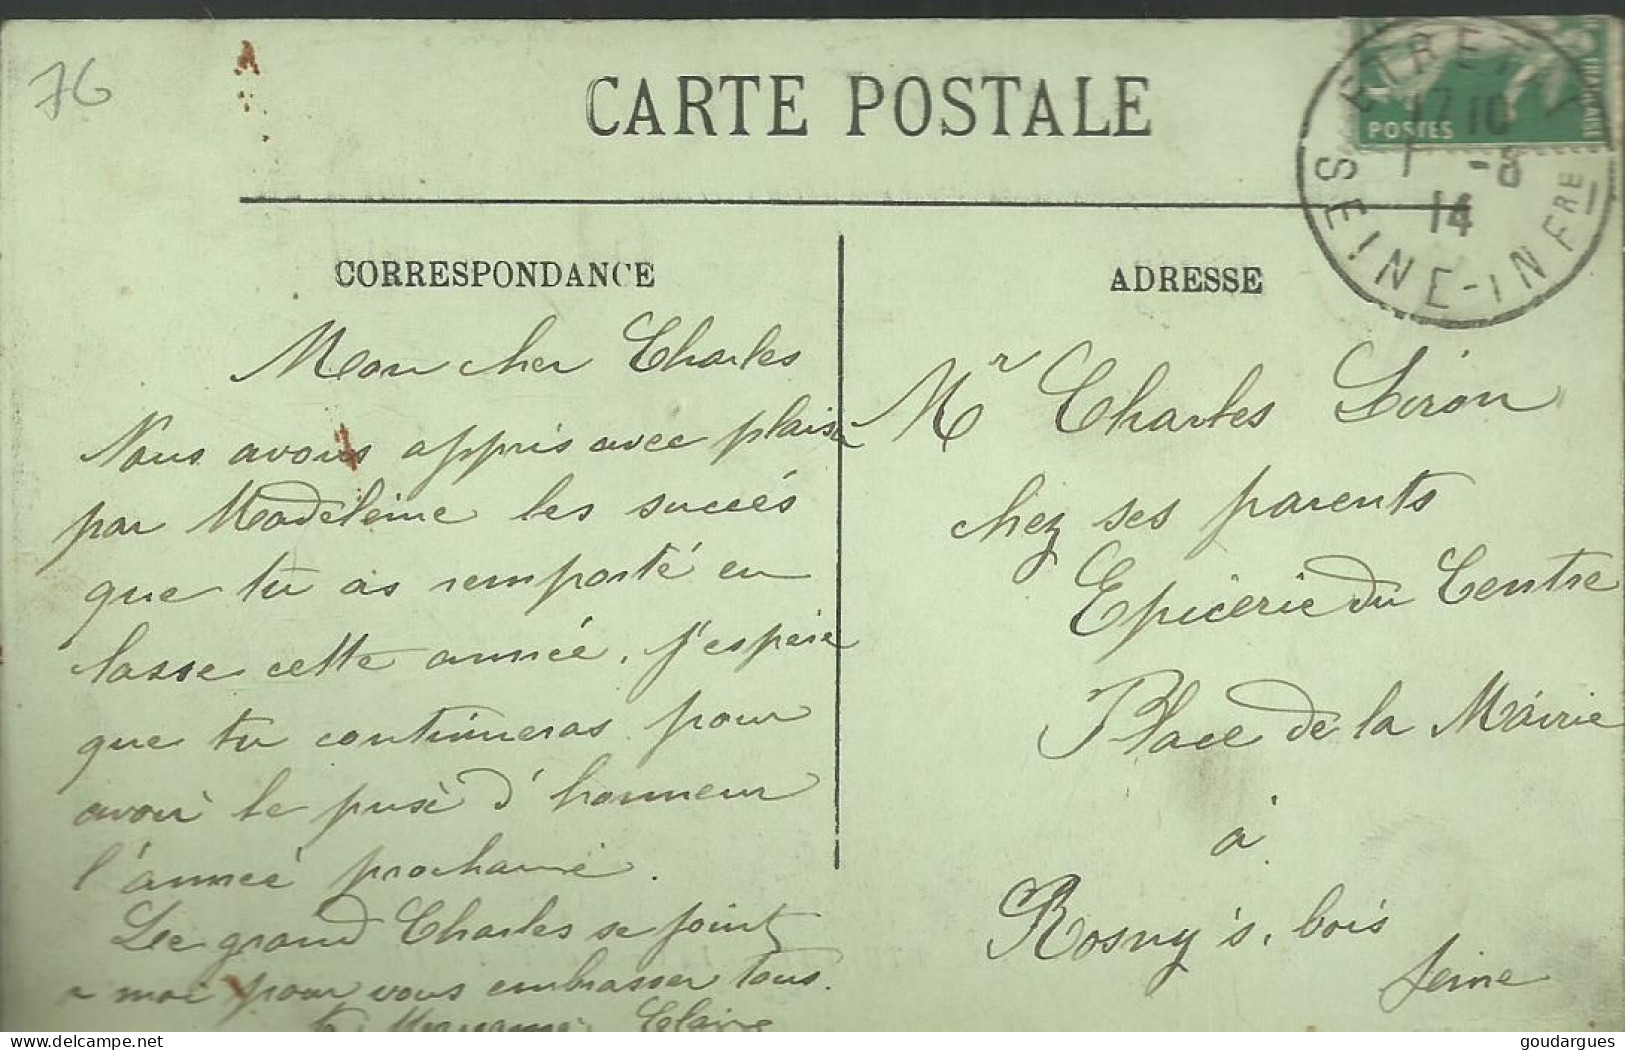 76
CARTE POSTALE
ETRETAT
17 10
1 -8
14
SEINE-INFRE
POSTES
FRANÇAISE
CORRESPONDANCE
ADRESSE
Mon cher Charles
Nous avons appris avec plaisir
par Madeleine les succés
que tu as remporté en
lasse cette année, j'espère
que tu continueras pour
avoir le prix d'honneur
l'année prochaine.
Le grand Charles se joint
a moi pour vous embrasser tous.
ta Marraine Claire
Mr Charles Liron
chez ses parents
Epicerie du Centre
Place de la Mairie
à
Rosny s. bois
Seine
delcampe.net
goudargues